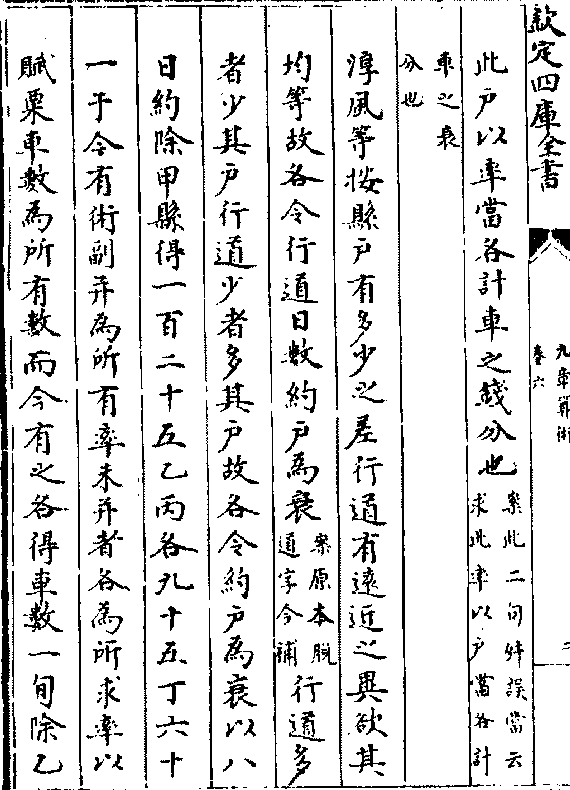 欽定四庫全書
九章算術
卷六
二
此戸以率當各計車之錢分也
案此二句舛誤當云
求此率以戸當各計
車之衰
分也
淳風等按縣戸有多少之差行道有遠近之異欲其
均等故各令行道日數約戸為衰
案原本脱
道字今補
行道多
者少其戸行道少者多其戸故各令約戸為衰以八
日約除甲縣得一百二十五乙丙各九十五丁六十
一于今有術副并為所有率未并者各為所求率以
賦粟車數為所有數而今有之各得車數一旬除乙